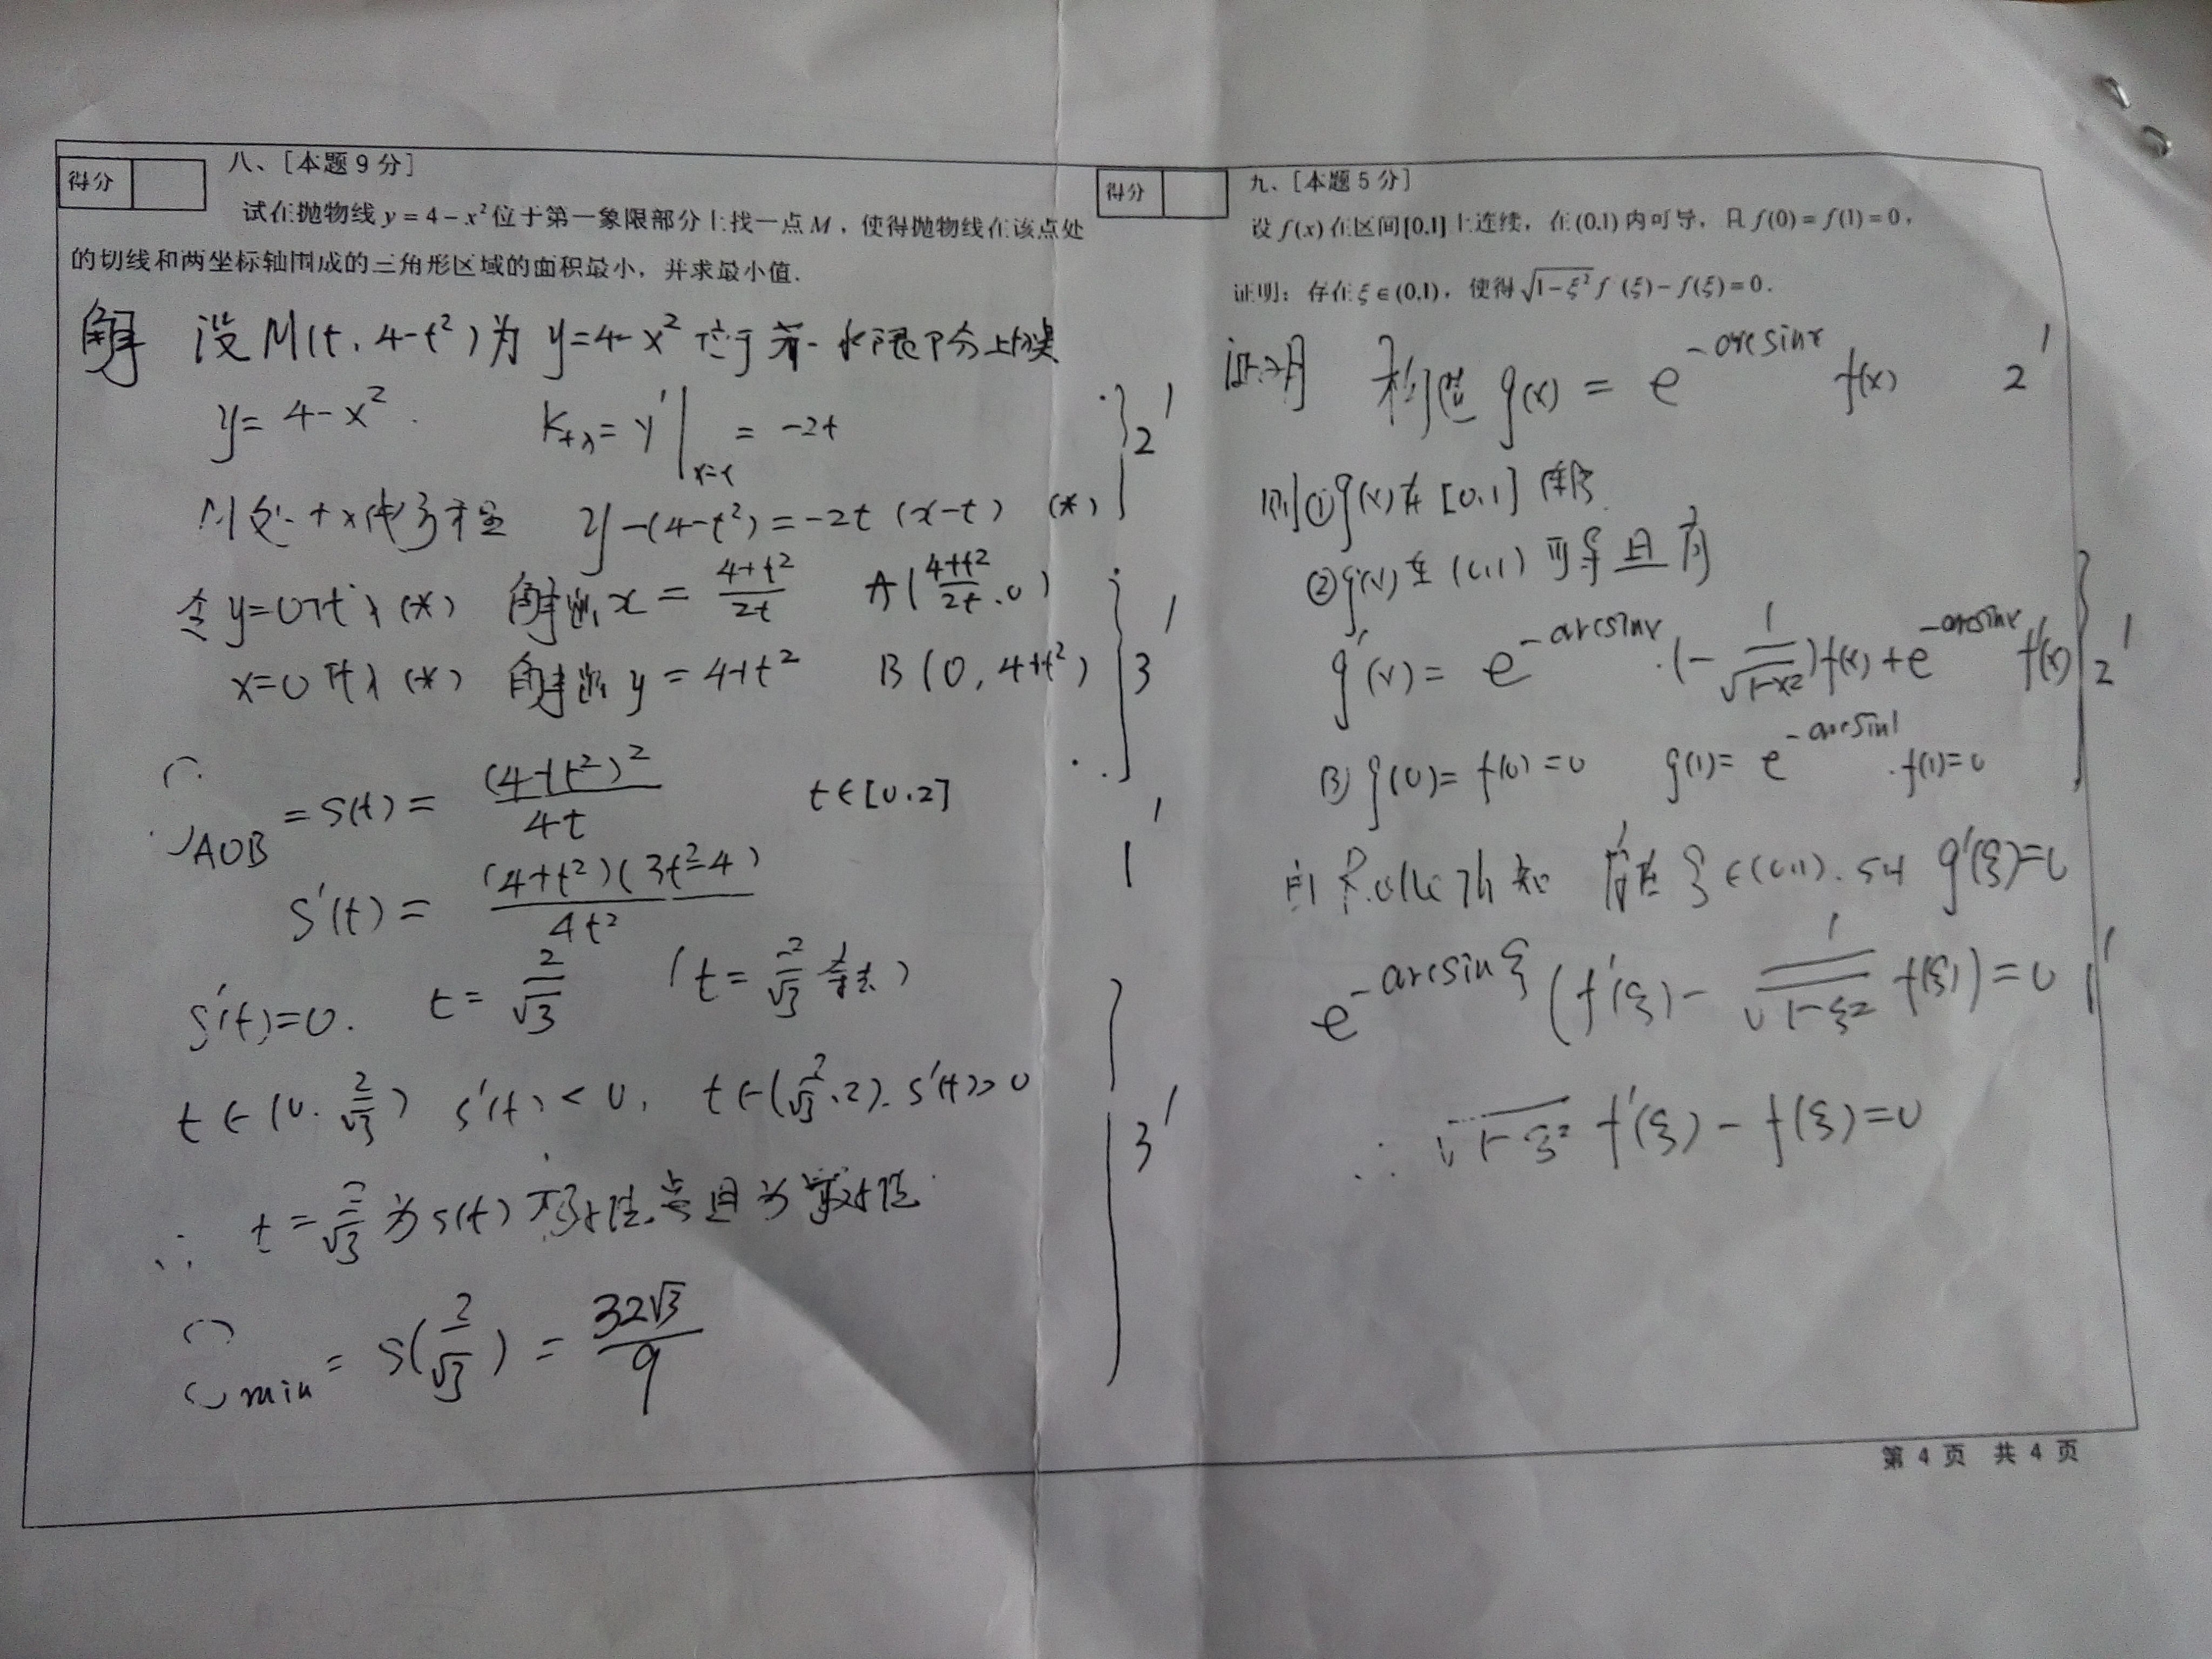 得分
八、[本题9分]
试在抛物线 y = 4 − x² 位于第一象限部分上找一点 M，使得抛物线在该点处
的切线和两坐标轴围成的三角形区域的面积最小，并求最小值.
解 设 M(t, 4-t²) 为 y=4-x² 位于第一象限部分上的点
y = 4-x². K切 = y'|x=t = -2t
2'
M处切线方程 y-(4-t²) = -2t (x-t) (*)
令 y=0代入(*) 解出 x = (4+t²)/2t A((4+t²)/2t, 0)
3'
x=0代入(*) 解出 y = 4+t² B(0, 4+t²)
S AOB = S(t) = (4+t²)²/4t t∈[0,2]
1'
S'(t) = (4+t²)(3t²-4)/4t²
S'(t)=0. t = 2/√3 (t = -2/√3 舍去)
t∈(0, 2/√3) S'(t)<0, t∈(2/√3, 2). S'(t)>0
3'
∴ t = 2/√3 为S(t) 极值点且为
S min = S(2/√3) = 32√3/9
得分
九、[本题5分]
设 f(x) 在区间[0,1]上连续，在(0,1)内可导，且 f(0) = f(1) = 0，
证明：存在 ξ∈(0,1)，使得 √(1−ξ²) f'(ξ) − f(ξ) = 0.
证明 构造 g(x) = e^(-arcsinx) f(x) 2'
则①g(x)在[0,1]连续
②g(x)在(0,1)可导且有
g'(x) = e^(-arcsinx)·(-1/√(1-x²))f(x) + e^(-arcsinx) f'(x) 2'
③ g(0) = f(0) = 0 g(1) = e^(-arcsin1)·f(1) = 0
由 Rolle Th 知 存在 ξ∈(0,1). s.t g'(ξ)=0
e^(-arcsinξ) (f'(ξ) - 1/√(1-ξ²) f(ξ)) = 0 1'
∴ √(1-ξ²) f'(ξ) - f(ξ) = 0
第 4 页 共 4 页